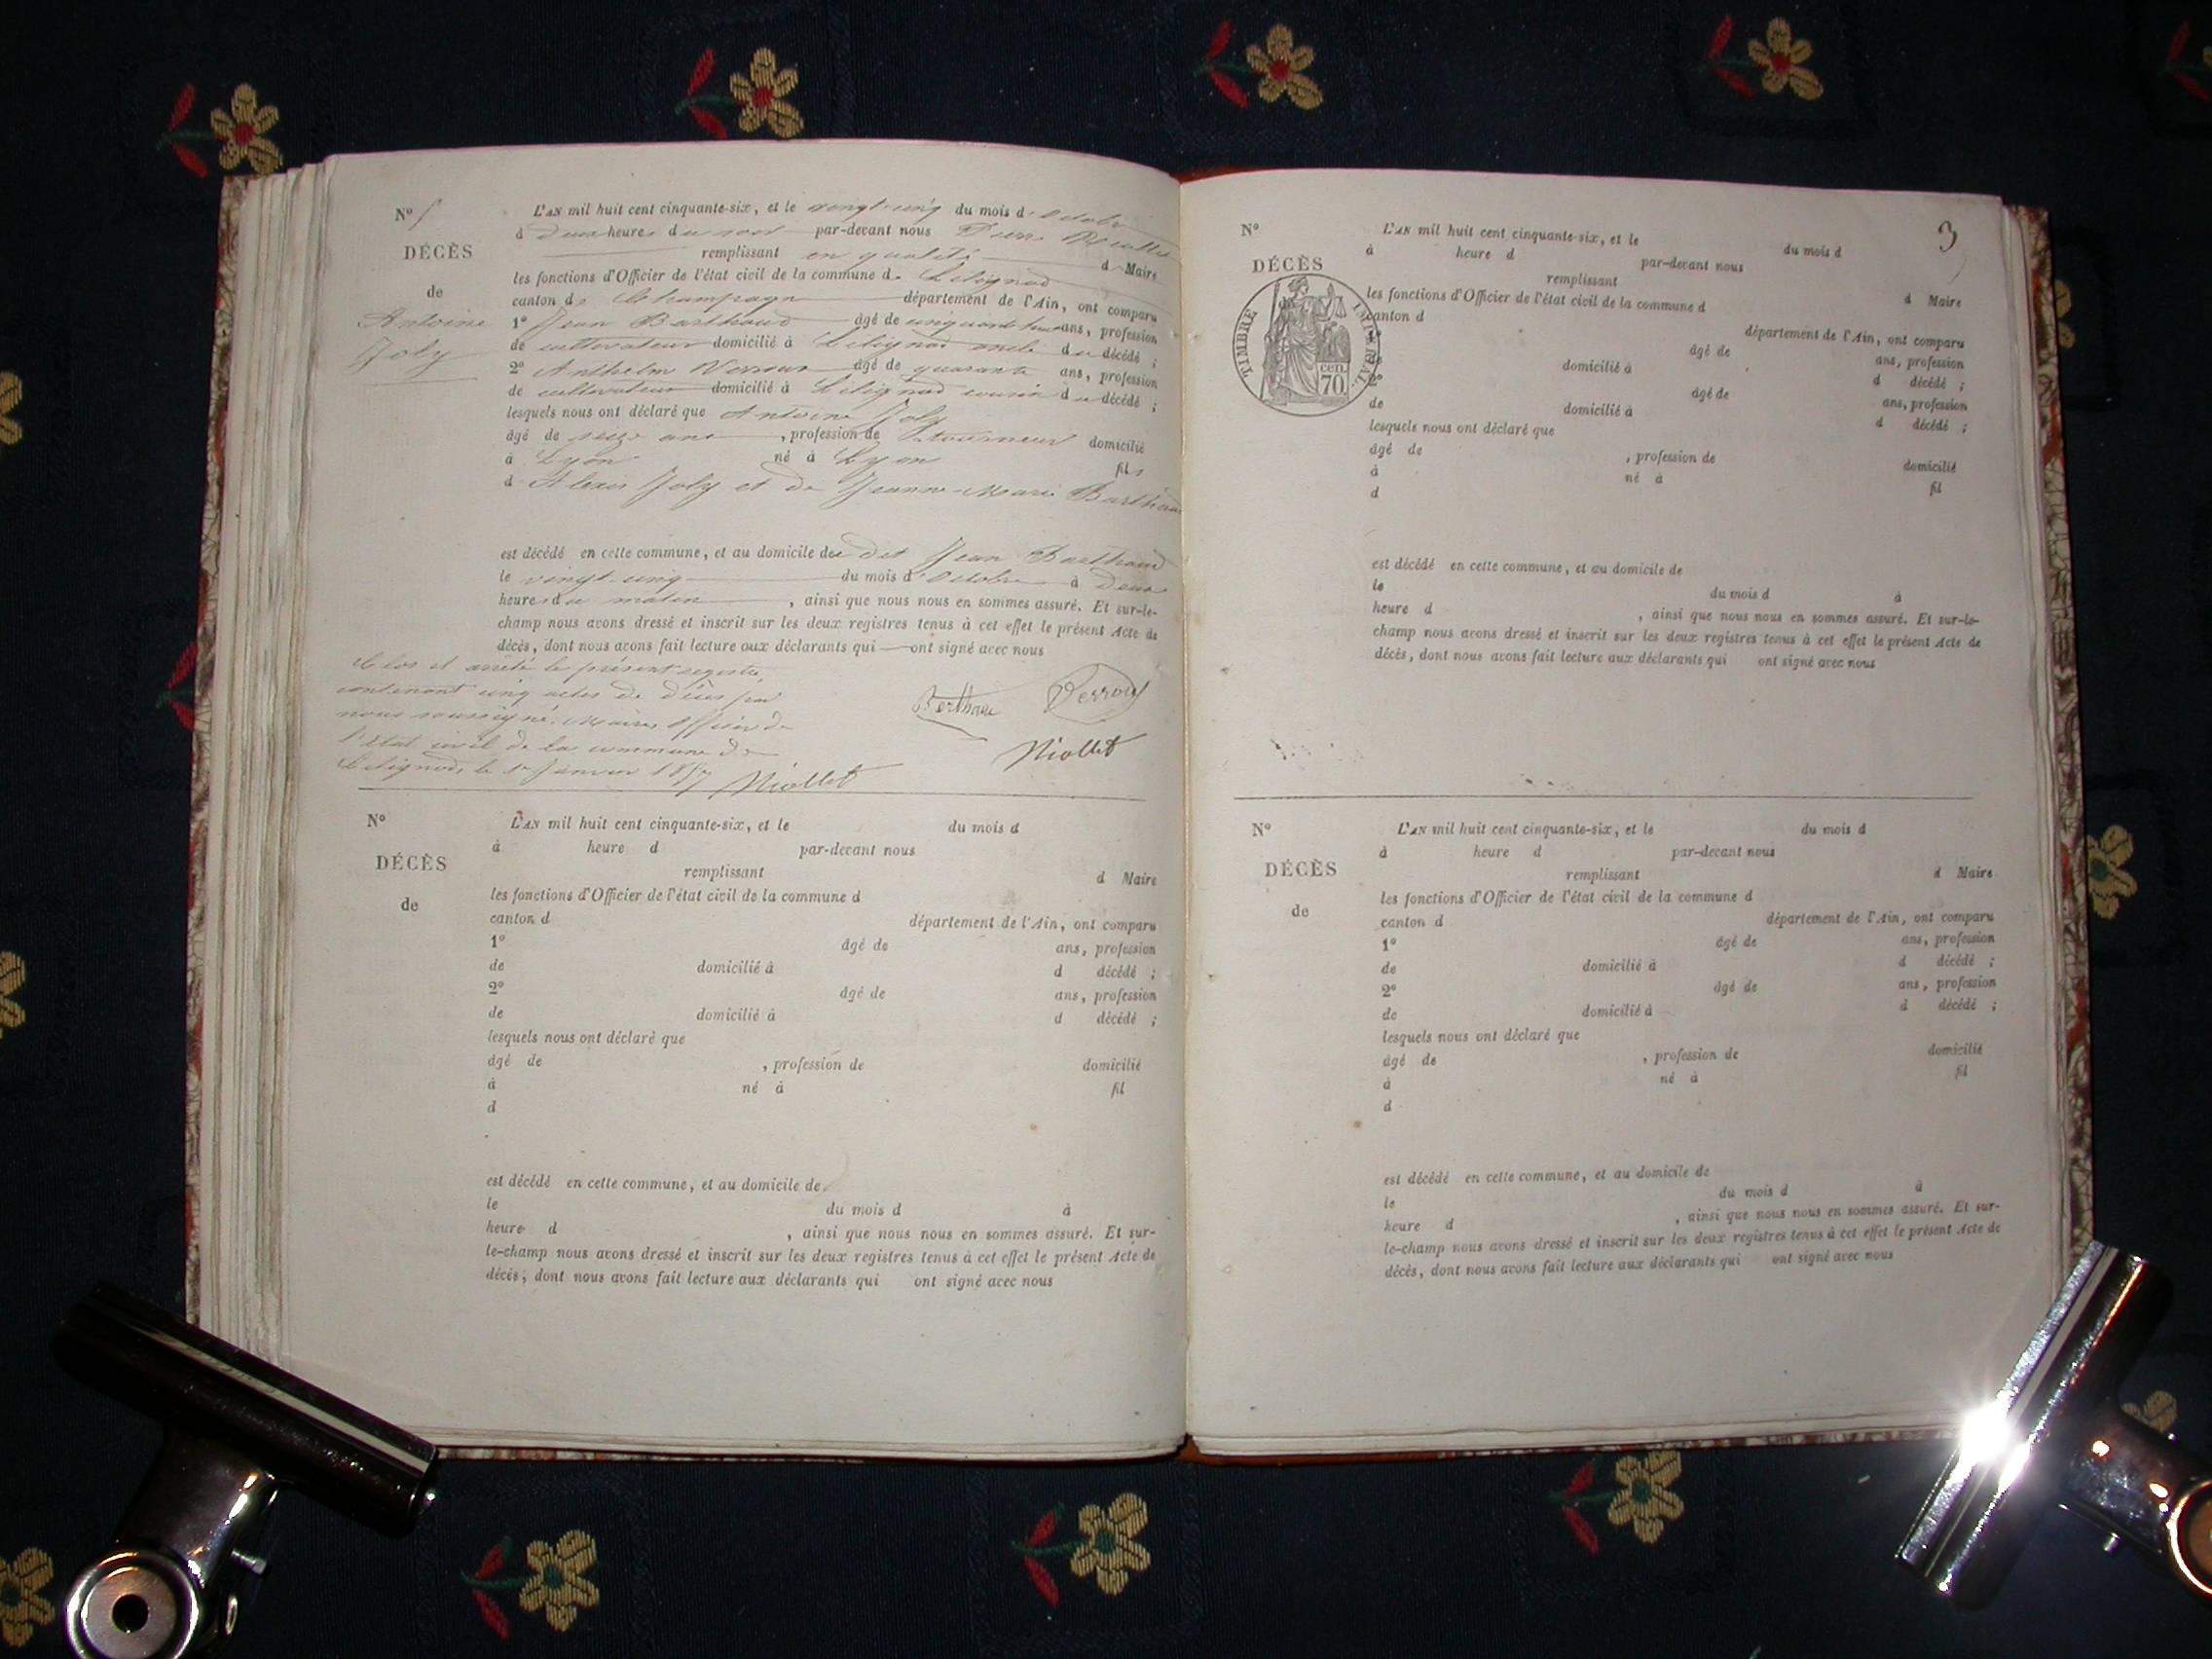 N° 5
DÉCÈS
de
Antoine
Joly
L'AN mil huit cent cinquante-six, et le vingt-cinq du mois d'Octobre
à Deux heures du soir par-devant nous Pierre Niollet
remplissant en qualité d Maire
les fonctions d'Officier de l'état civil de la commune de Lilignod
canton de Champagne département de l'Ain, ont comparu
1° Jean Barthaud âgé de cinquante huit ans, profession
de cultivateur domicilié à Lilignod oncle du décédé ;
2° Anthelm Verroux âgé de quarante ans, profession
de cultivateur domicilié à Lilignod cousin du décédé ;
lesquels nous ont déclaré que Antoine Joly
âgé de seize ans , profession de tourneur domicilié
à Lyon né à Lyon fils
d'Alexis Joly et de Jeanne-Marie Barthaud
est décédé en cette commune, et au domicile de dit Jean Barthaud
le vingt-cinq du mois d'Octobre à Deux
heures du matin , ainsi que nous nous en sommes assuré. Et sur-le-
champ nous avons dressé et inscrit sur les deux registres tenus à cet effet le présent Acte de
décès, dont nous avons fait lecture aux déclarants qui ont signé avec nous
Clos et arrêté le présent registre,
contenant cinq actes de décès par
nous soussigné, Maire, Officier de
l'état civil de la commune de
Lilignod, le 1er Janvier 1857 Niollet
Berthaud Verroux
Niollet
N°
DÉCÈS
de
L'AN mil huit cent cinquante-six, et le du mois d
à heure d par-devant nous
remplissant d Maire
les fonctions d'Officier de l'état civil de la commune d
canton d département de l'Ain, ont comparu
1° âgé de ans, profession
de domicilié à d décédé ;
2° âgé de ans, profession
de domicilié à d décédé ;
lesquels nous ont déclaré que
âgé de , profession de domicilié
à né à fil
d
est décédé en cette commune, et au domicile de
le du mois d à
heure d , ainsi que nous nous en sommes assuré. Et sur-
le-champ nous avons dressé et inscrit sur les deux registres tenus à cet effet le présent Acte de
décès, dont nous avons fait lecture aux déclarants qui ont signé avec nous
3
N°
DÉCÈS
TIMBRE IMPÉRIAL
cen. 70
L'AN mil huit cent cinquante-six, et le du mois d
à heure d par-devant nous
remplissant d Maire
les fonctions d'Officier de l'état civil de la commune d
canton d département de l'Ain, ont comparu
âgé de ans, profession
domicilié à d décédé ;
2° âgé de ans, profession
de domicilié à d décédé ;
lesquels nous ont déclaré que
âgé de , profession de domicilié
à né à fil
d
est décédé en cette commune, et au domicile de
le du mois d à
heure d , ainsi que nous nous en sommes assuré. Et sur-le-
champ nous avons dressé et inscrit sur les deux registres tenus à cet effet le présent Acte de
décès, dont nous avons fait lecture aux déclarants qui ont signé avec nous
N°
DÉCÈS
de
L'AN mil huit cent cinquante-six, et le du mois d
à heure d par-devant nous
remplissant d Maire
les fonctions d'Officier de l'état civil de la commune d
canton d département de l'Ain, ont comparu
1° âgé de ans, profession
de domicilié à d décédé ;
2° âgé de ans, profession
de domicilié à d décédé ;
lesquels nous ont déclaré que
âgé de , profession de domicilié
à né à fil
d
est décédé en cette commune, et au domicile de
le du mois d à
heure d , ainsi que nous nous en sommes assuré. Et sur-
le-champ nous avons dressé et inscrit sur les deux registres tenus à cet effet le présent Acte de
décès, dont nous avons fait lecture aux déclarants qui ont signé avec nous